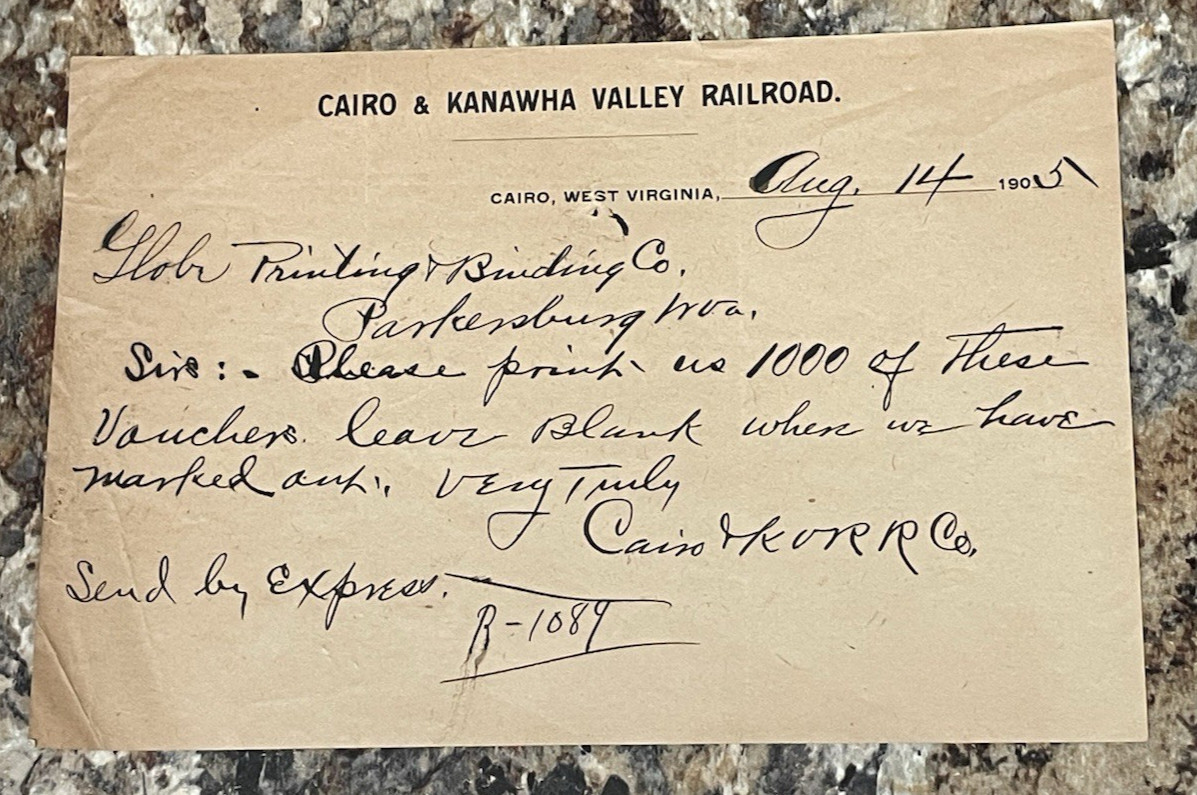 CAIRO & KANAWHA VALLEY RAILROAD.
CAIRO, WEST VIRGINIA, Aug. 14 1905
Globe Printing & Binding Co.
Parkersburg W Va.
Sirs:- Please print us 1000 of these
Vouchers. leave Blank where we have
marked out. Very Truly
Cairo & K V R R Co.
Send by Express.
B-1089